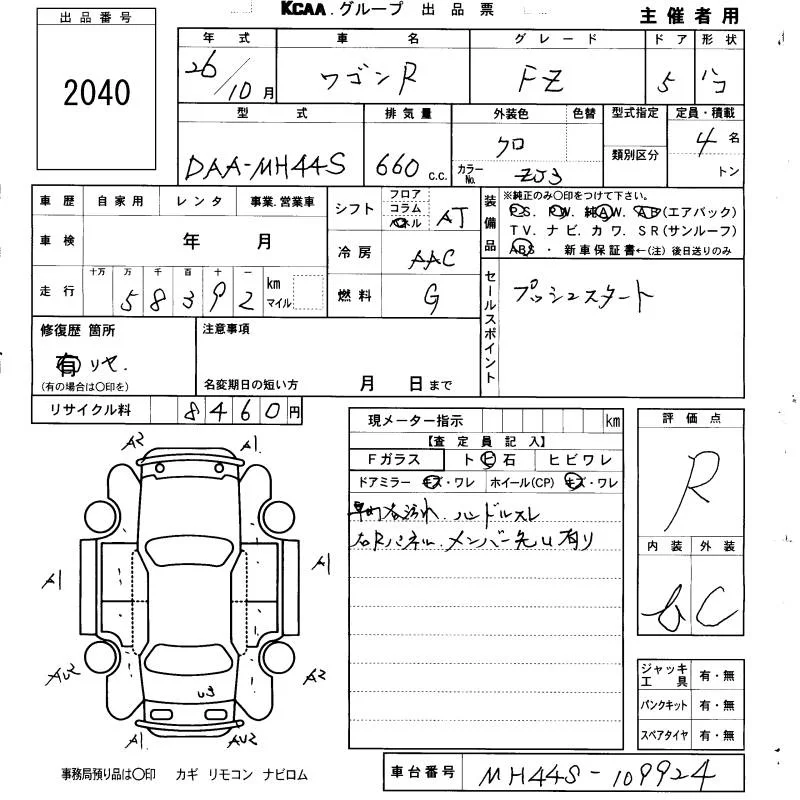 KCAA.グループ 出品票
主催者用
出品番号
2040
年式 車名 グレード ドア 形状
26/10月 ワゴンR FZ 5 ハコ
型式 排気量 外装色 色替 型式指定 定員・積載
DAA-MH44S 660 c.c. クロ 4名
カラーNo. ZJ3 類別区分 トン
車歴 自家用 レンタ 事業.営業車
シフト フロア コラム パネル AT
装備品 ※純正のみ○印をつけて下さい。
P.S. P.W. 純A W. A B(エアバック)
TV. ナビ. カワ. SR(サンルーフ)
ABS・新車保証書←(注)後日送りのみ
車検 年 月
冷房 AAC
走行 十万 万 千 百 十 一
58392 km マイル
燃料 G
セールスポイント
プッシュスタート
修復歴 箇所
有 リヤ.
(有の場合は○印を)
注意事項
名変期日の短い方 月 日まで
リサイクル料 8460円
現メーター指示 km
【査定員記入】
Fガラス トビ石 ヒビワレ
ドアミラー キズ・ワレ ホイール(CP) キズ・ワレ
ハンドルスレ
右Rパネル.メンバー先 有り
評価点
R
内装 外装
C
A2 A1
A1 A1
AU2 A2
U3
A1 AU2
ジャッキ 工具 有・無
パンクキット 有・無
スペアタイヤ 有・無
事務局預り品は○印 カギ リモコン ナビロム
車台番号 MH44S-109924